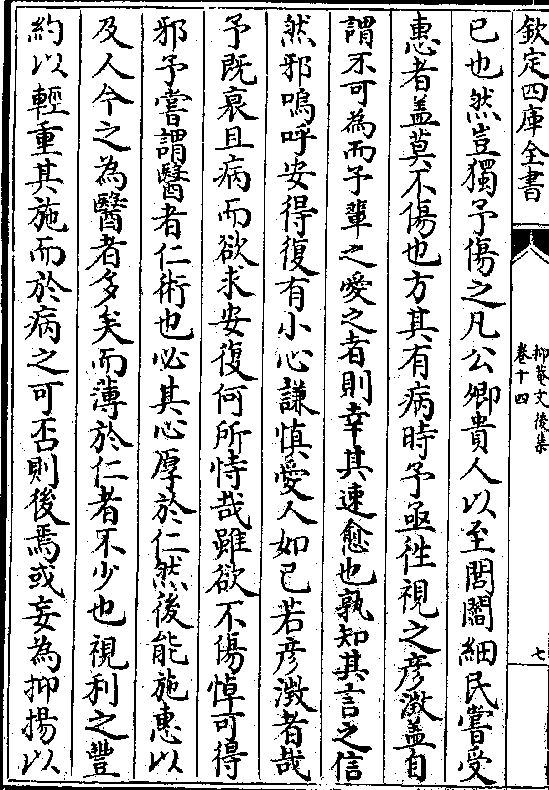 欽定四庫全書
抑菴文後集
卷十四
七
已也然豈獨予傷之凡公卿貴人以至閭閻細民嘗受
惠者蓋莫不傷也方其有病時予亟徃視之彥澂蓋自
謂不可為而予輩之愛之者則幸其速愈也孰知其言之信
然邪嗚呼安得復有小心謙慎愛人如己若彥澂者哉
予既哀且病而欲求安復何所恃哉雖欲不傷悼可得
邪予嘗謂醫者仁術也必其心厚於仁然後能施惠以
及人今之為醫者多矣而薄於仁者不少也視利之豐
約以輕重其施而於病之可否則後焉或妄為抑揚以